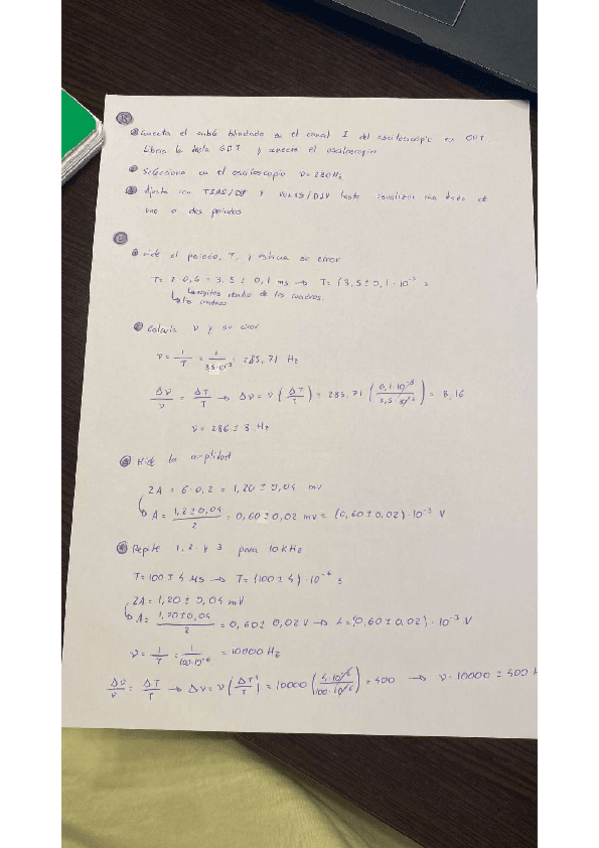 B
① Conecta el cable blindado en el canal I del osciloscopio en OUT.
Libera la tecla GDI y conecta el osciloscopio
② Selecciona en el osciloscopio ν = 280 Hz
③ Ajusta con TIME/DIV y VOLTS/DIV hasta visualizar una onda de
uno o dos periodos
C
① Mide el periodo, T, y estima su error
T = 7 · 0,5 = 3.5 ± 0,1 ms → T = (3,5 ± 0,1 · 10⁻³ s
↳ dentro de los cuadros.
② Calcula ν y su error
ν = 1/T = 1/3.5·10⁻³ = 285,71 Hz
Δν/ν = ΔT/T → Δν = ν (ΔT/T) = 285.71 (0,1·10⁻³/3,5·10⁻³) = 8,16
ν = 286 ± 8 Hz
③ Mide la amplitud
2A = 6 · 0,2 = 1,20 ± 0,04 mv
↳ A = 1,2 ± 0,04/2 = 0,60 ± 0,02 mv = (0,60 ± 0,02) · 10⁻³ V
④ Repite 1, 2 y 3 para 10 kHz
T = 100 ± 4 μs → T = (100 ± 4) · 10⁻⁶ s
2A = 1,20 ± 0,04 mV
↳ A = 1,20 ± 0,04/2 = 0,60 ± 0,02 V → A = (0,60 ± 0,02) · 10⁻³ V
ν = 1/T = 1/100·10⁻⁶ = 10000 Hz
Δν/ν = ΔT/T → Δν = ν (ΔT/T) = 10000 (4·10⁻⁶/100·10⁻⁶) = 400 → ν = 10000 ± 400 H